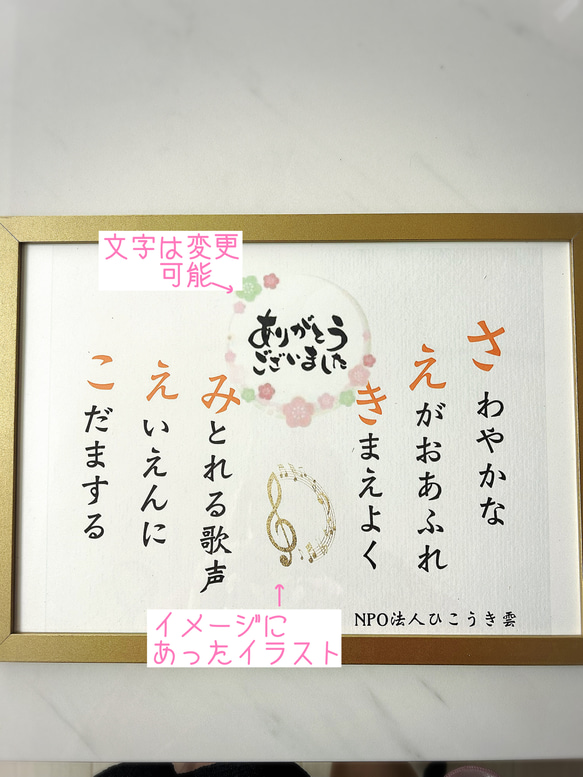 文字は変更
可能→
ありがとう
ございました
さわやかな
えがおあふれ
きまえよく
みとれる歌声
えいえんに
こだまする
NPO法人ひこうき雲
↑
イメージに
あったイラスト